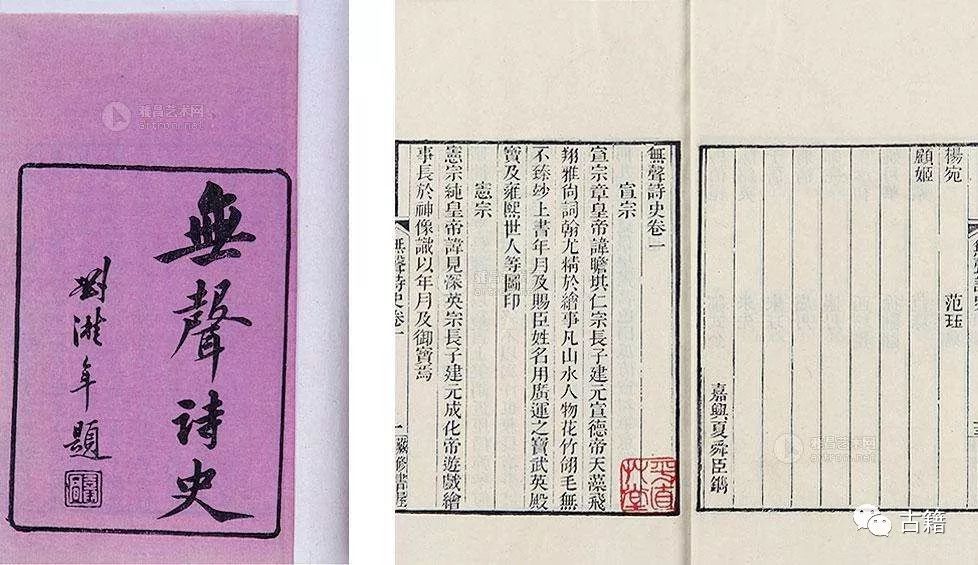 無聲詩史
劉溎年題
楊宛
范珏
顧姬
嘉興夏舜臣鐫
無聲詩史卷一
宣宗
宣宗章皇帝諱瞻基仁宗長子建元宣德帝天藻飛
翔雅尙詞翰尤精於繪事凡山水人物花竹翎毛無
不臻妙上書年月及賜臣姓名用廣運之寶武英殿
寶及雍熙世人等圖印
憲宗
憲宗純皇帝諱見深英宗長子建元成化帝遊戲繪
事長於神像識以年月及御寶焉
無聲詩史卷一
一
藏修書屋
雅昌艺术网
artron.net
古籍